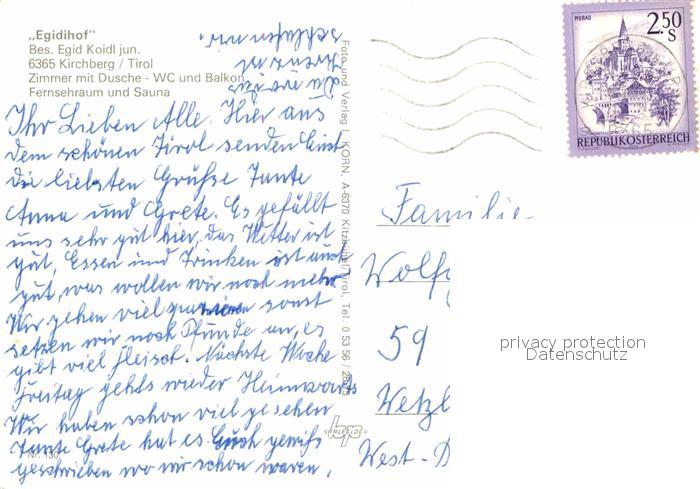 „Egidihof"
Bes. Egid Koidl jun.
6365 Kirchberg / Tirol
Zimmer mit Dusche - WC und Balkon
Fernsehraum und Sauna
Ihr Lieben Alle. Hier aus
dem schönen Tirol senden Euch
die liebsten Grühse Tante
Anna und Grete. Es gefällt
uns sehr gut hier, das Wetter ist
gut, Essen und Trinken ist auch
gut, was wollen wir noch mehr.
Wir gehen viel spazieren sonst
setzen wir noch Pfunde an, es
gibt viel Fleisch. Nächste Woche
Freitag gehts wieder Heimwärts
Wir haben schon viel gesehen
Tante Grete hat es Euch gewiß
geschrieben wo wir schon waren.
Nr. 130
Foto und Verlag L. KORN, A-6370 Kitzbühel/Tirol, Tel. 0 53 56 /
MURAU
2.50
S
REPUBLIK ÖSTERREICH
Familie
Wolfg
59
Wetzl
West-D
privacy protection
Datenschutz